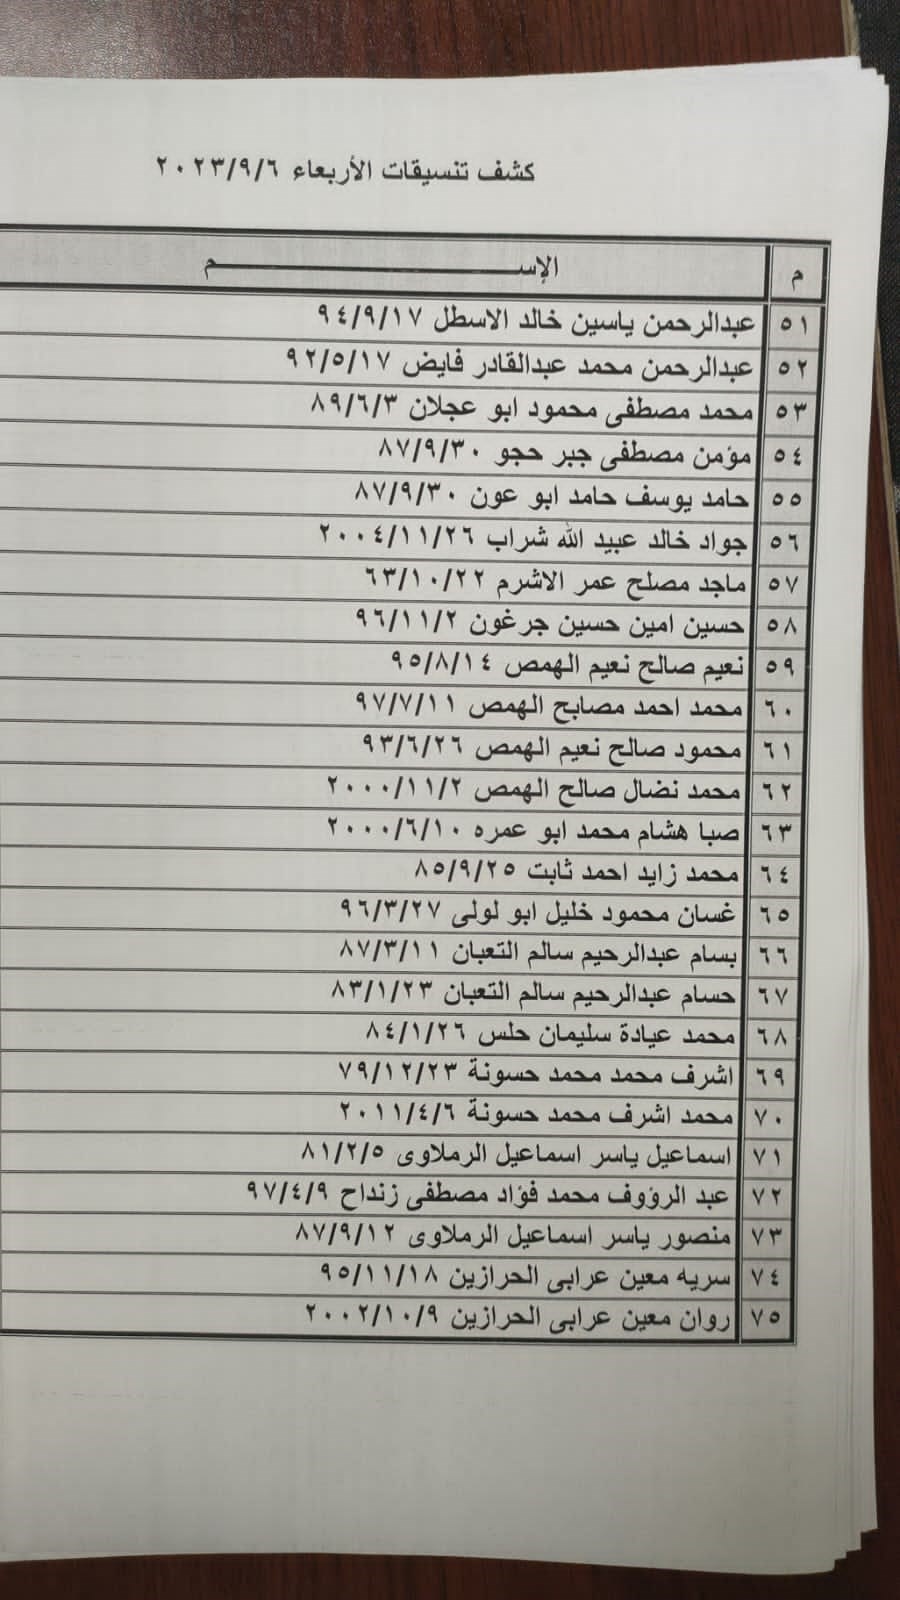 كشف تنسيقات الأربعاء ٢٠٢٣/٩/٦
م الإســـــــــــــم
٥١ عبدالرحمن ياسين خالد الاسطل ٩٤/٩/١٧
٥٢ عبدالرحمن محمد عبدالقادر فايض ٩٢/٥/١٧
٥٣ محمد مصطفى محمود ابو عجلان ٨٩/٦/٣
٥٤ مؤمن مصطفى جبر حجو ٨٧/٩/٣٠
٥٥ حامد يوسف حامد ابو عون ٨٧/٩/٣٠
٥٦ جواد خالد عبيد الله شراب ٢٠٠٤/١١/٢٦
٥٧ ماجد مصلح عمر الاشرم ٦٣/١٠/٢٢
٥٨ حسين امين حسين جرغون ٩٦/١١/٢
٥٩ نعيم صالح نعيم الهمص ٩٥/٨/١٤
٦٠ محمد احمد مصابح الهمص ٩٧/٧/١١
٦١ محمود صالح نعيم الهمص ٩٣/٦/٢٦
٦٢ محمد نضال صالح الهمص ٢٠٠٠/١١/٢
٦٣ صبا هشام محمد ابو عمره ٢٠٠٠/٦/١٠
٦٤ محمد زايد احمد ثابت ٨٥/٩/٢٥
٦٥ غسان محمود خليل ابو لولى ٩٦/٣/٢٧
٦٦ بسام عبدالرحيم سالم التعبان ٨٧/٣/١١
٦٧ حسام عبدالرحيم سالم التعبان ٨٣/١/٢٣
٦٨ محمد عيادة سليمان حلس ٨٤/١/٢٦
٦٩ اشرف محمد محمد حسونة ٧٩/١٢/٢٣
٧٠ محمد اشرف محمد حسونة ٢٠١١/٤/٦
٧١ اسماعيل ياسر اسماعيل الرملاوى ٨١/٢/٥
٧٢ عبد الرؤوف محمد فؤاد مصطفى زنداح ٩٧/٤/٩
٧٣ منصور ياسر اسماعيل الرملاوى ٨٧/٩/١٢
٧٤ سريه معين عرابى الحرازين ٩٥/١١/١٨
٧٥ روان معين عرابى الحرازين ٢٠٠٢/١٠/٩